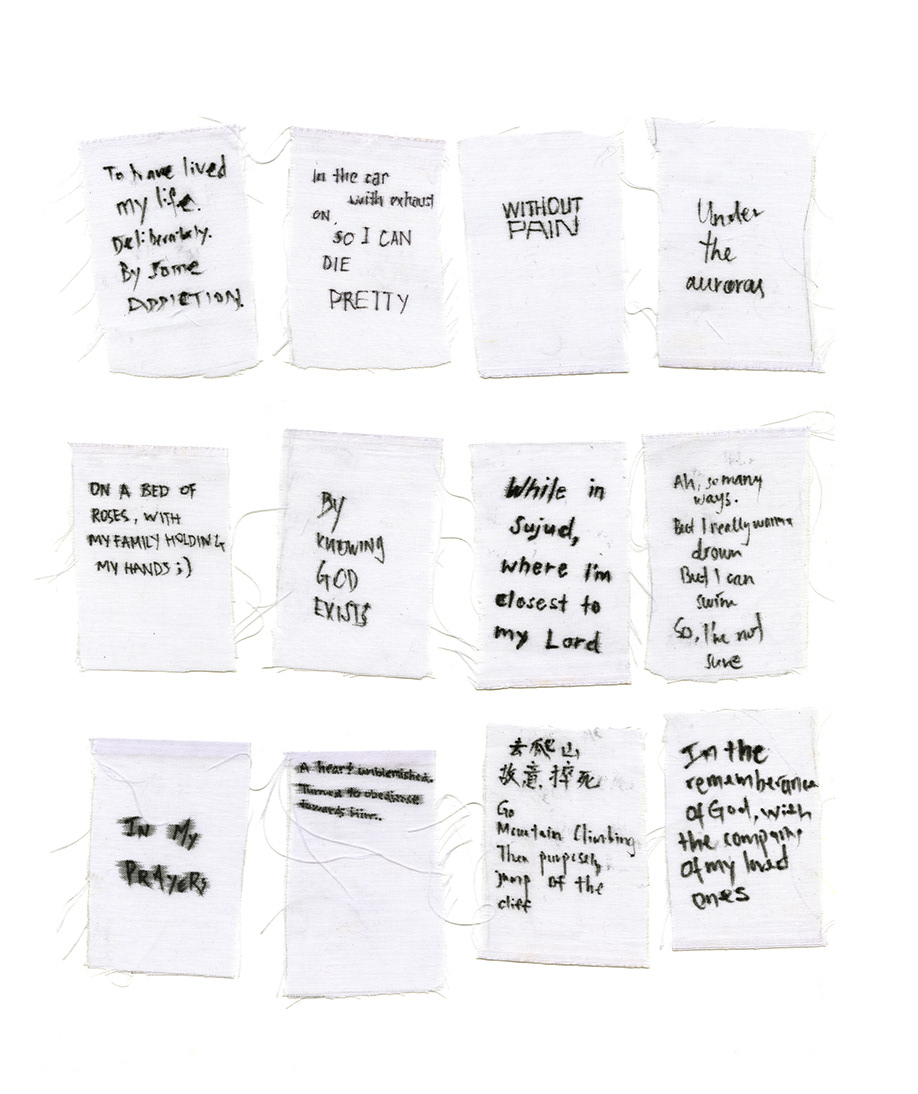 To have lived
my life.
Deliberately.
By some
ADDICTION.
in the car
with exhaust
ON.
SO I CAN
DIE
PRETTY
WITHOUT
PAIN
Under
the
auroras
ON A BED OF
ROSES, WITH
MY FAMILY HOLDING
MY HANDS ;)
By
KNOWING
GOD
EXISTS
While in
Sujud,
where I'm
closest to
my Lord
Ah, so many
ways.
But I really wanna
drown
But I can
swim
So, I'm not
sure
IN MY
PRAYERS
A heart unblemished.
Turned to obedience
towards him.
去爬山
故意摔死
Go
Mountain Climbing
Then purposely
jump of the
cliff
In the
rememberance
of God, with
the company
of my loved
ones